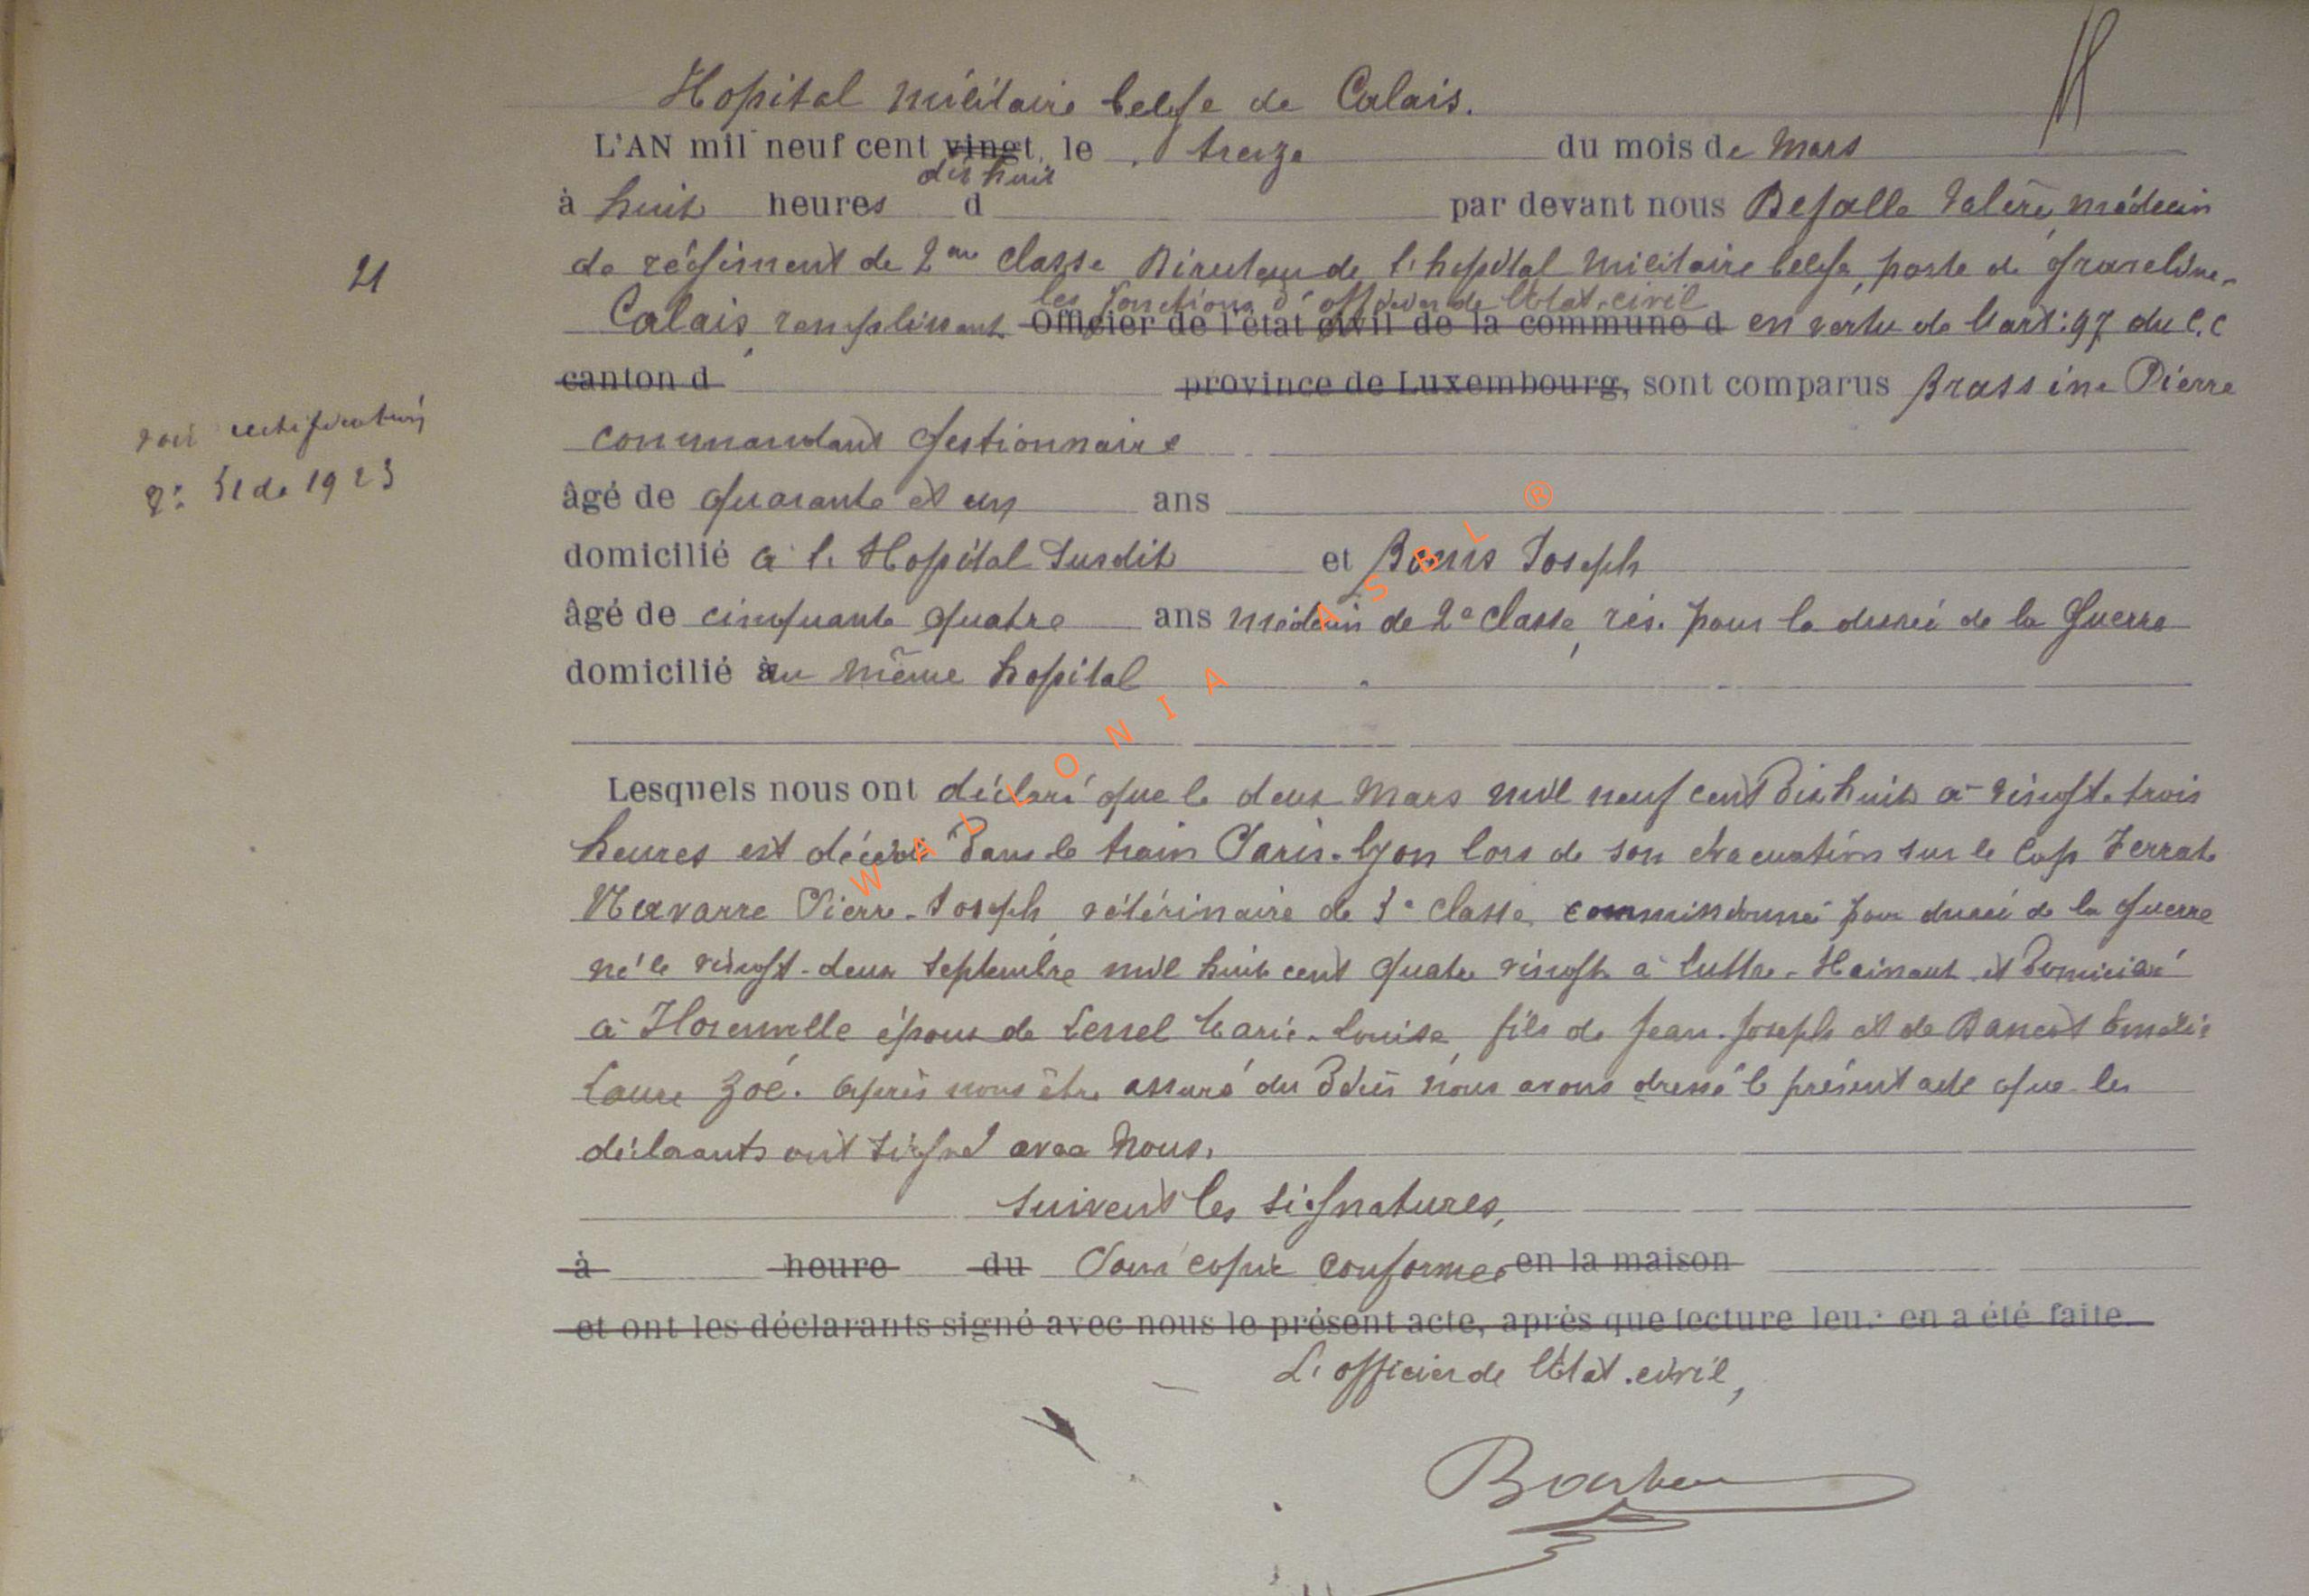 Hopital militaire belge de Calais.
L'AN mil neuf cent vingt, le treize du mois de Mars
dix huit
à huit heures d par devant nous Befalle Valère, médecin
de régiment de 2me classe Directeur de l'hopital militaire belge, poste de Gravelines
21
les fonctions d'officier de l'Etat-civil
Calais, remplissant Officier de l'état civil de la commune d en vertu de l'art: 97 du C.C
canton d province de Luxembourg, sont comparus Brassine Pierre
voir rectification
n° 51 de 1923
commandant gestionnaire
âgé de quarante et un ans
domicilié à l. Hopital susdit et Joseph
âgé de cinquante quatre ans médecin de 2e classe, rés. pour la durée de la guerre
domicilié au même hopital
Lesquels nous ont déclaré que le deux Mars mil neuf cent dix huit à vingt-trois
heures est décédé dans le train Paris-Lyon lors de son évacuation sur le Cap Ferrat
Navarre Pierre-Joseph, vétérinaire de 3e classe, commissionné pour durée de la guerre
né le vingt-deux septembre mil huit cent quatre vingt à Luttre-Hainaut et domicilié
à Florenville époux de Lessel Marie-Louise, fils de Jean-Joseph et de Bancot Emélie
Laure Zoé. Après nous être assuré du décès nous avons dressé le présent acte que les
déclarants ont signé avec nous.
suivent les signatures,
à heure du Pour copie conforme en la maison
et ont les déclarants signé avec nous le présent acte, après que lecture leur en a été faite.
L'officier de l'Etat-civil,
WALLONIA ASBL ®